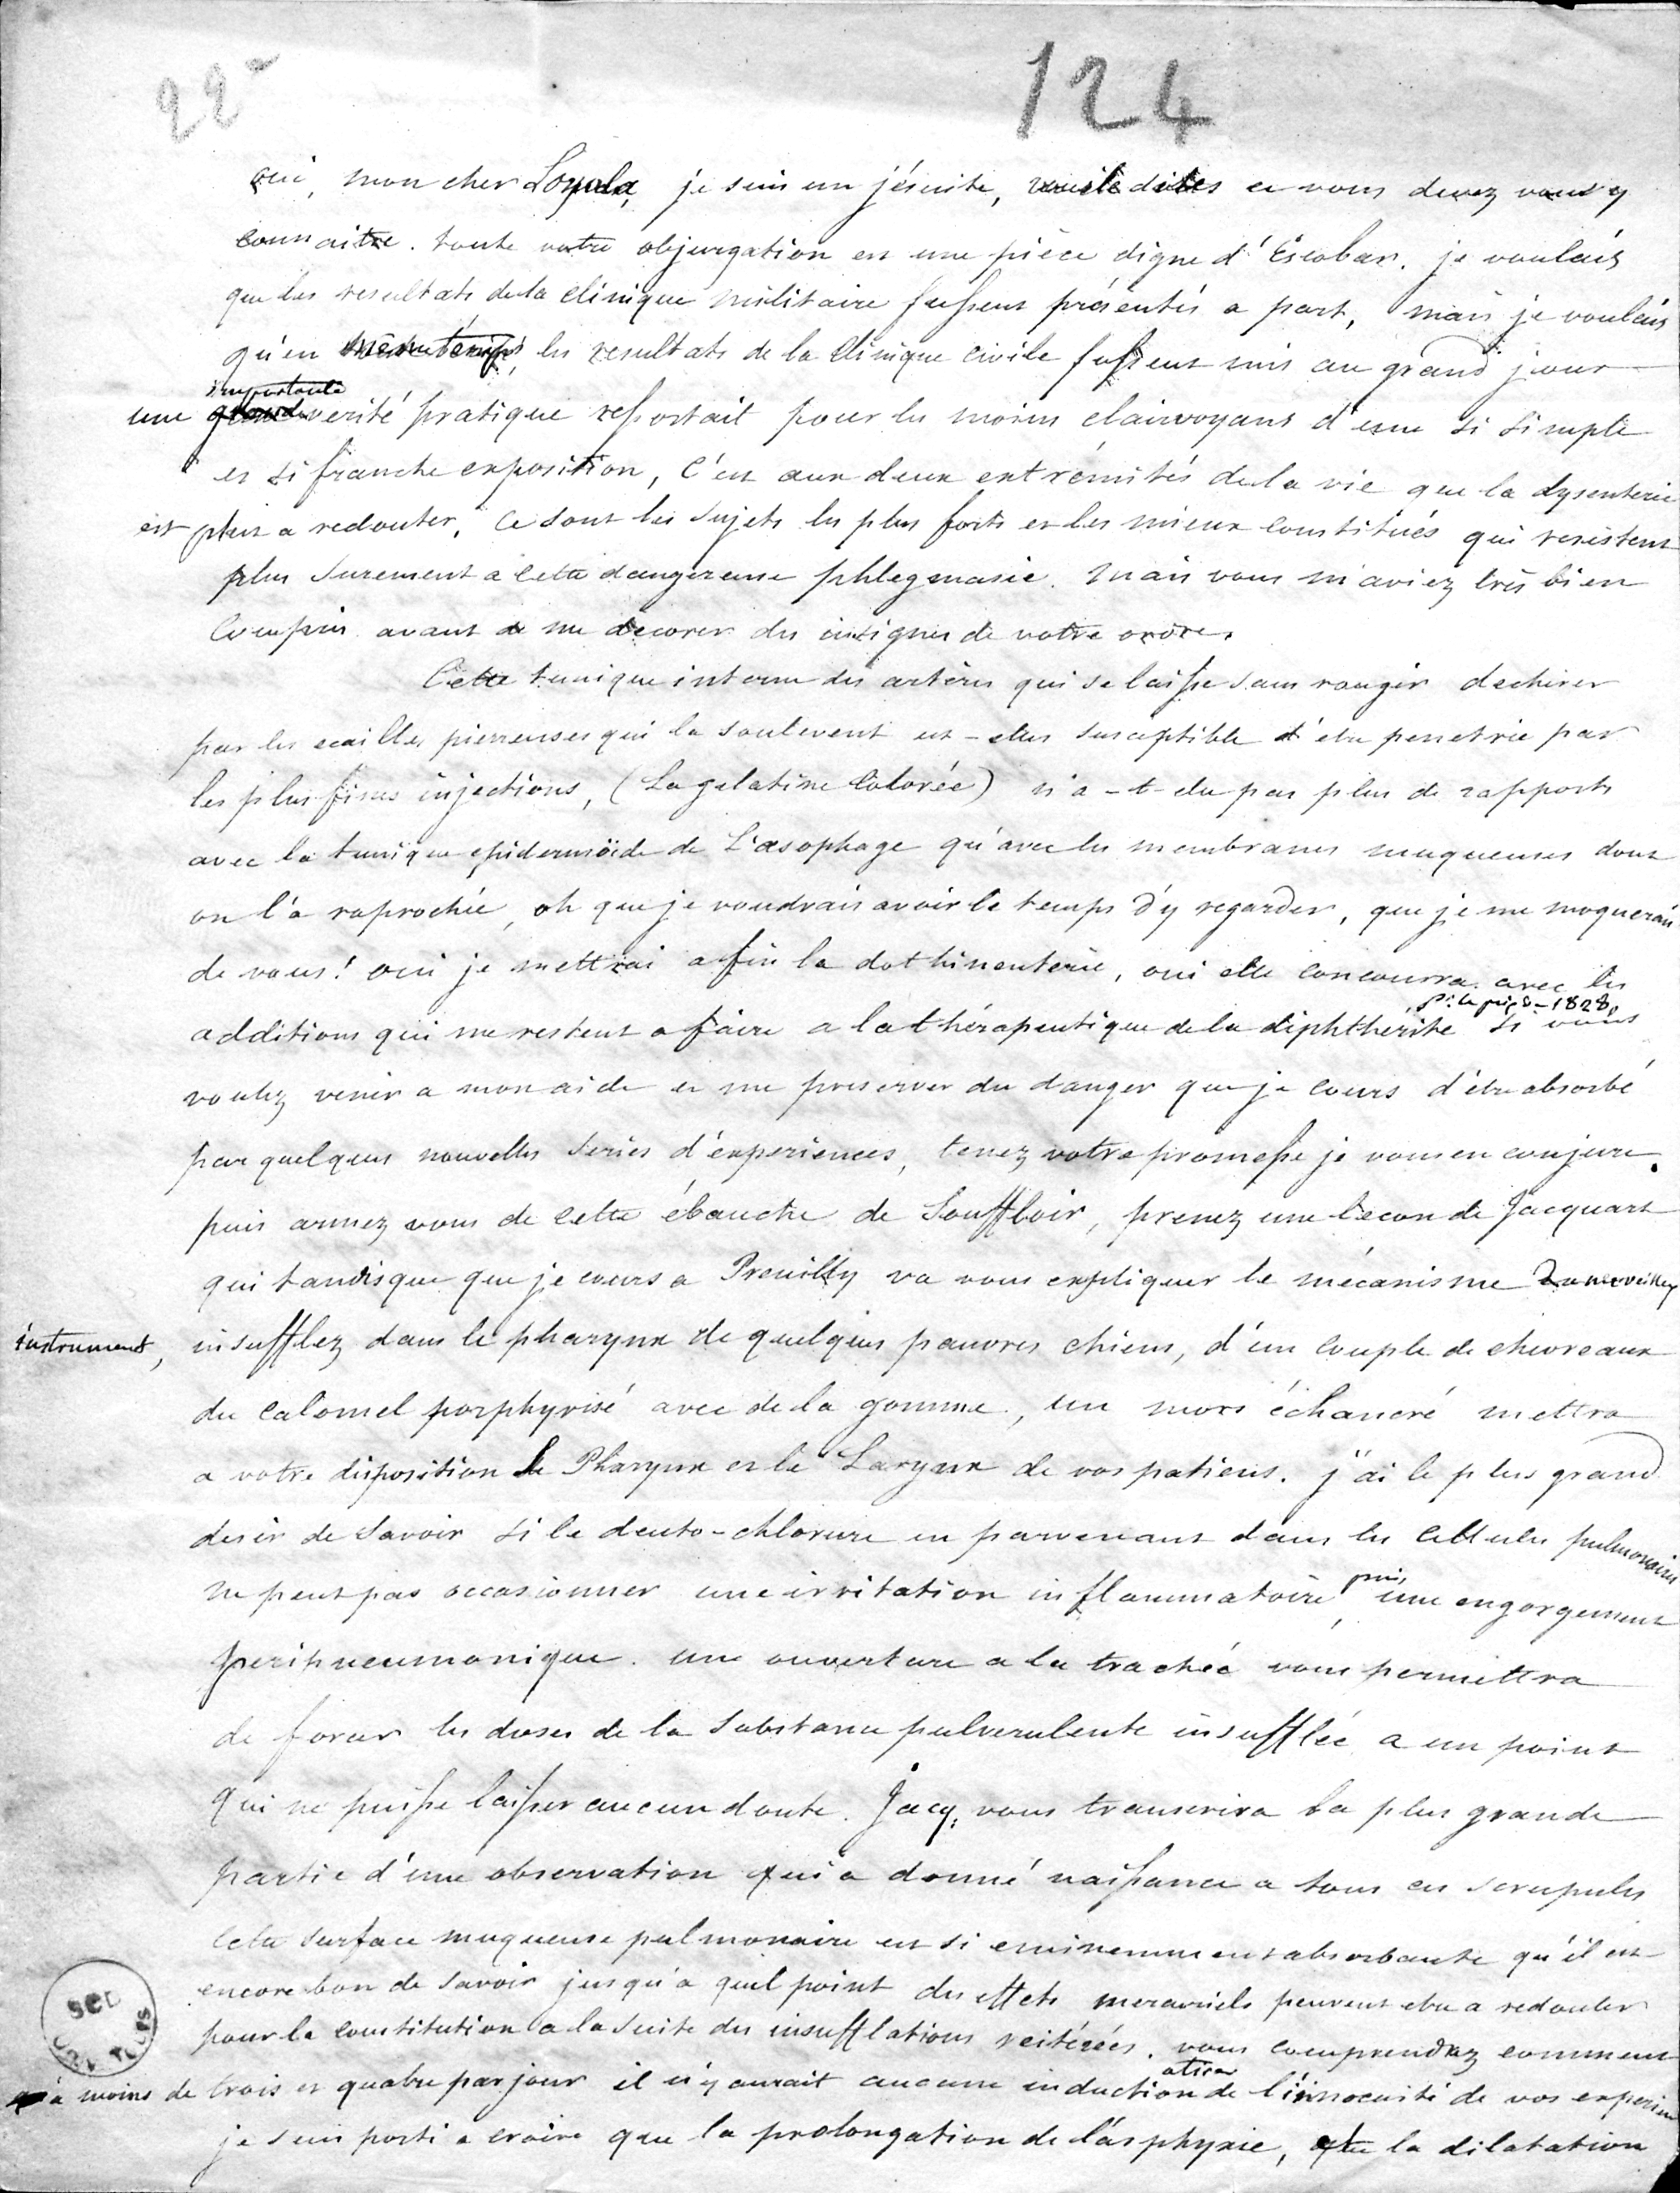 22-
124
oui, mon cher Loyola, je suis un jésuite, vous le dites et vous devez vous y
connaitre. toute votre objurgation est une pièce digne d'Escobar. je voulais
que les resultats de la clinique militaire fussent présentés a part, mais je voulais
qu'en même temps, les resultats de la clinique civile fussent mis au grand jour
importante
une grande verité pratique ressortait pour les moins clairvoyans d'une si simple
et si franche exposition, c'est aux deux extrémités de la vie que la dysenterie
est plus a redouter, ce sont les sujets les plus forts et les mieux constitués qui resistent
plus surement a cette dangereuse phlegmasie. Mais vous m'aviez très bien
compris avant de me décorer des insignes de votre ordre.
Cette tunique interne des artères qui se laisse sans rougir dechirer
par les ecailles pierreuses qui la soulevent est-elles susceptible d'etre penetrée par
les plus fines injections, (La gelatine Colorée) n'a-t-elle pas plus de rapports
avec la tunique epidermoïde de L'œsophage qu'avec les membranes muqueuses dont
on l'a raprochée, oh que je voudrais avoir le temps d'y regarder, que je me moquerais
de vous! oui je mettrai a fin la dothinenterie, oui elle concourra avec les
pr le prix - 1828,
additions qui me restent a faire a la thérapeutique de la diphthérite si vous
voulez venir a mon aide et me preserver du danger que je cours d'être absorbé
par quelques nouvelles series d'experiences, tenez votre promesse je vous en conjure.
puis armez vous de cette ébauche de Souffloir, prenez une lecon de Jacquart
qui tandisque que je cours a Preuilly va vous expliquer le mécanisme du merveilleux
instrument, insufflez dans le pharynx de quelques pauvres chiens, d'un couple de chevreaux
du calomel porphyrisé avec de la gomme, un mors échancré mettra
a votre disposition le Pharynx et le Larynx de vos patiens. j'ai le plus grand
desir de savoir si le deuto-chlorure en parvenant dans les cellules pulmonaires
ne peut pas occasionner une irritation inflammatoire, puis une engorgement
peripneumonique. une ouverture a la trachée vous permettra
de forcer les doses de la substance pulverulente insufflée a un point
qui ne puisse laisser aucun doute. Jacq. vous transcrira la plus grande
partie d'une observation qui a donné naissance a tous ces scrupules
cette surface muqueuse pulmonaire est si eminemment absorbante qu'il est
encore bon de savoir jusqu'a quel point des effets mercuriels peuvent etre a redouter
pour la constitution a la suite des insufflations reitérées. vous comprendrez comment
a tirer
a moins de trois et quatre par jour il n'y aurait aucune induction de l'innocuité de vos experien
je suis porté a croire que la prolongation de l'asphyxie, que la dilatation
SCD
TOURS